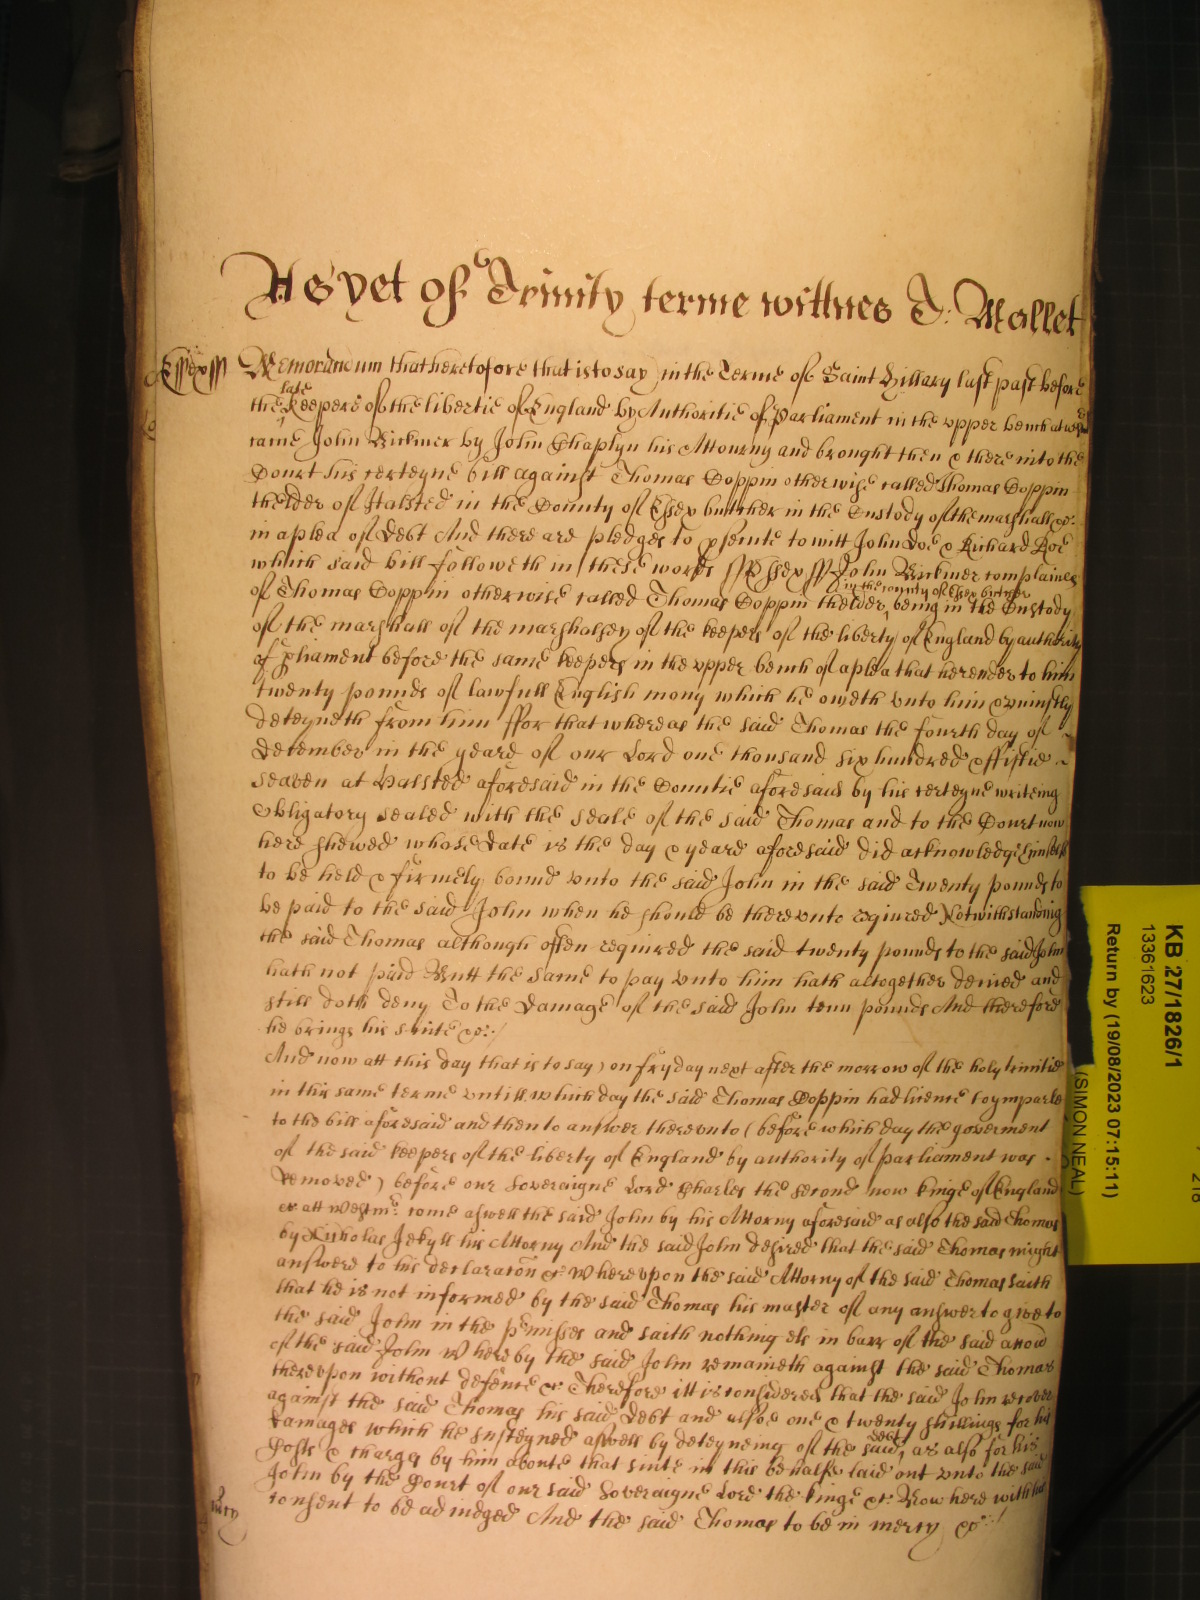 As yet of Trinity terme wittnes T: Mallet
Essex ss Memorandum that heretofore that is to say in the Terme of Saint Hillary last past before
late
the keepers of the libertie of England by Authoritie of Parliament in the vpper bench at
came John Rickmer by John Chaplyn his Attourny and brought then & there into the
Court his certeyne bill against Thomas Coppin otherwise called Thomas Coppin
thelder of Halsted in the County of Essex butcher in the Custody of the marshall &c:
in a plea of Debt And there are pledges to psecute to witt John Doe & Richard Roe
which said bill followeth in these words ss Essex ss John Rickmer complaines
in the county of Essex butcher
of Thomas Coppin otherwise called Thomas Coppin thelder being in the Custody
of the marshall of the marshalsey of the keepers of the liberty of England by authority
of pliament before the same keepers in the vpper bench of a plea that he render to him
twenty pounds of lawfull English mony which he oweth vnto him & vniustly
deteyneth from him ffor that whereas the said Thomas the fourth day of
December in the yeare of our Lord one thousand six hundred & ffiftie
seaven at Halsted aforesaid in the Countie aforesaid by his certeyne writeing
Obligatory sealed with the seale of the said Thomas and to the Court now
here shewed whose date is the day & yeare aforesaid did acknowledge himself
to be held & firmely bound vnto the said John in the said Twenty pounds to
be paid to the said John when he should be therevnto required Notwithstanding
the said Thomas although often required the said twenty pounds to the said John
hath not paid Butt the same to pay vnto him hath altogether denied and
still doth deny To the damage of the said John tenn pounds And therefore
he brings his suite &c:
And now att this day that is to say) on fryday next after the morrow of the holy trinitie
in this same terme vntill which day the said Thomas Coppin had licence to imparle
to the bill aforesaid and then to answer therevnto (before which day the goverment
of the said keepers of the liberty of England by authority of Parliament was
Removed) before our Soveraigne Lord Charles the second now kinge of England
&c att Westmr: come aswell the said John by his Attorny aforesaid as also the said Thomas
by Nicholas Jekyll his Attorny And the said John desired that the said Thomas might
answere to his declaracon &c Wherevpon the said Attorny of the said Thomas saith
that he is not informed by the said Thomas his master of any answer to give to
the said John in the pmisses and saith nothing els in barr of the said accon
of the said John Whereby the said John remaineth against the said Thomas
therevpon without defence &c Therefore itt is considered that the said John recover
against the said Thomas his said Debt and alsoe one & twenty shillings for his
damages which he susteyned aswell by deteyneing of the said debt, as also for his
Costs & charges by him aboute that suite in this behalfe laid out vnto the said
John by the Court of our said Soveraigne Lord the kinge &c: Now here with his
consent to be adiudged And the said Thomas to be in mercy &c:
mercy
KB 27/1826/1
13361623
Return by (19/08/2023 07:15:11)
(SIMON NEAL)